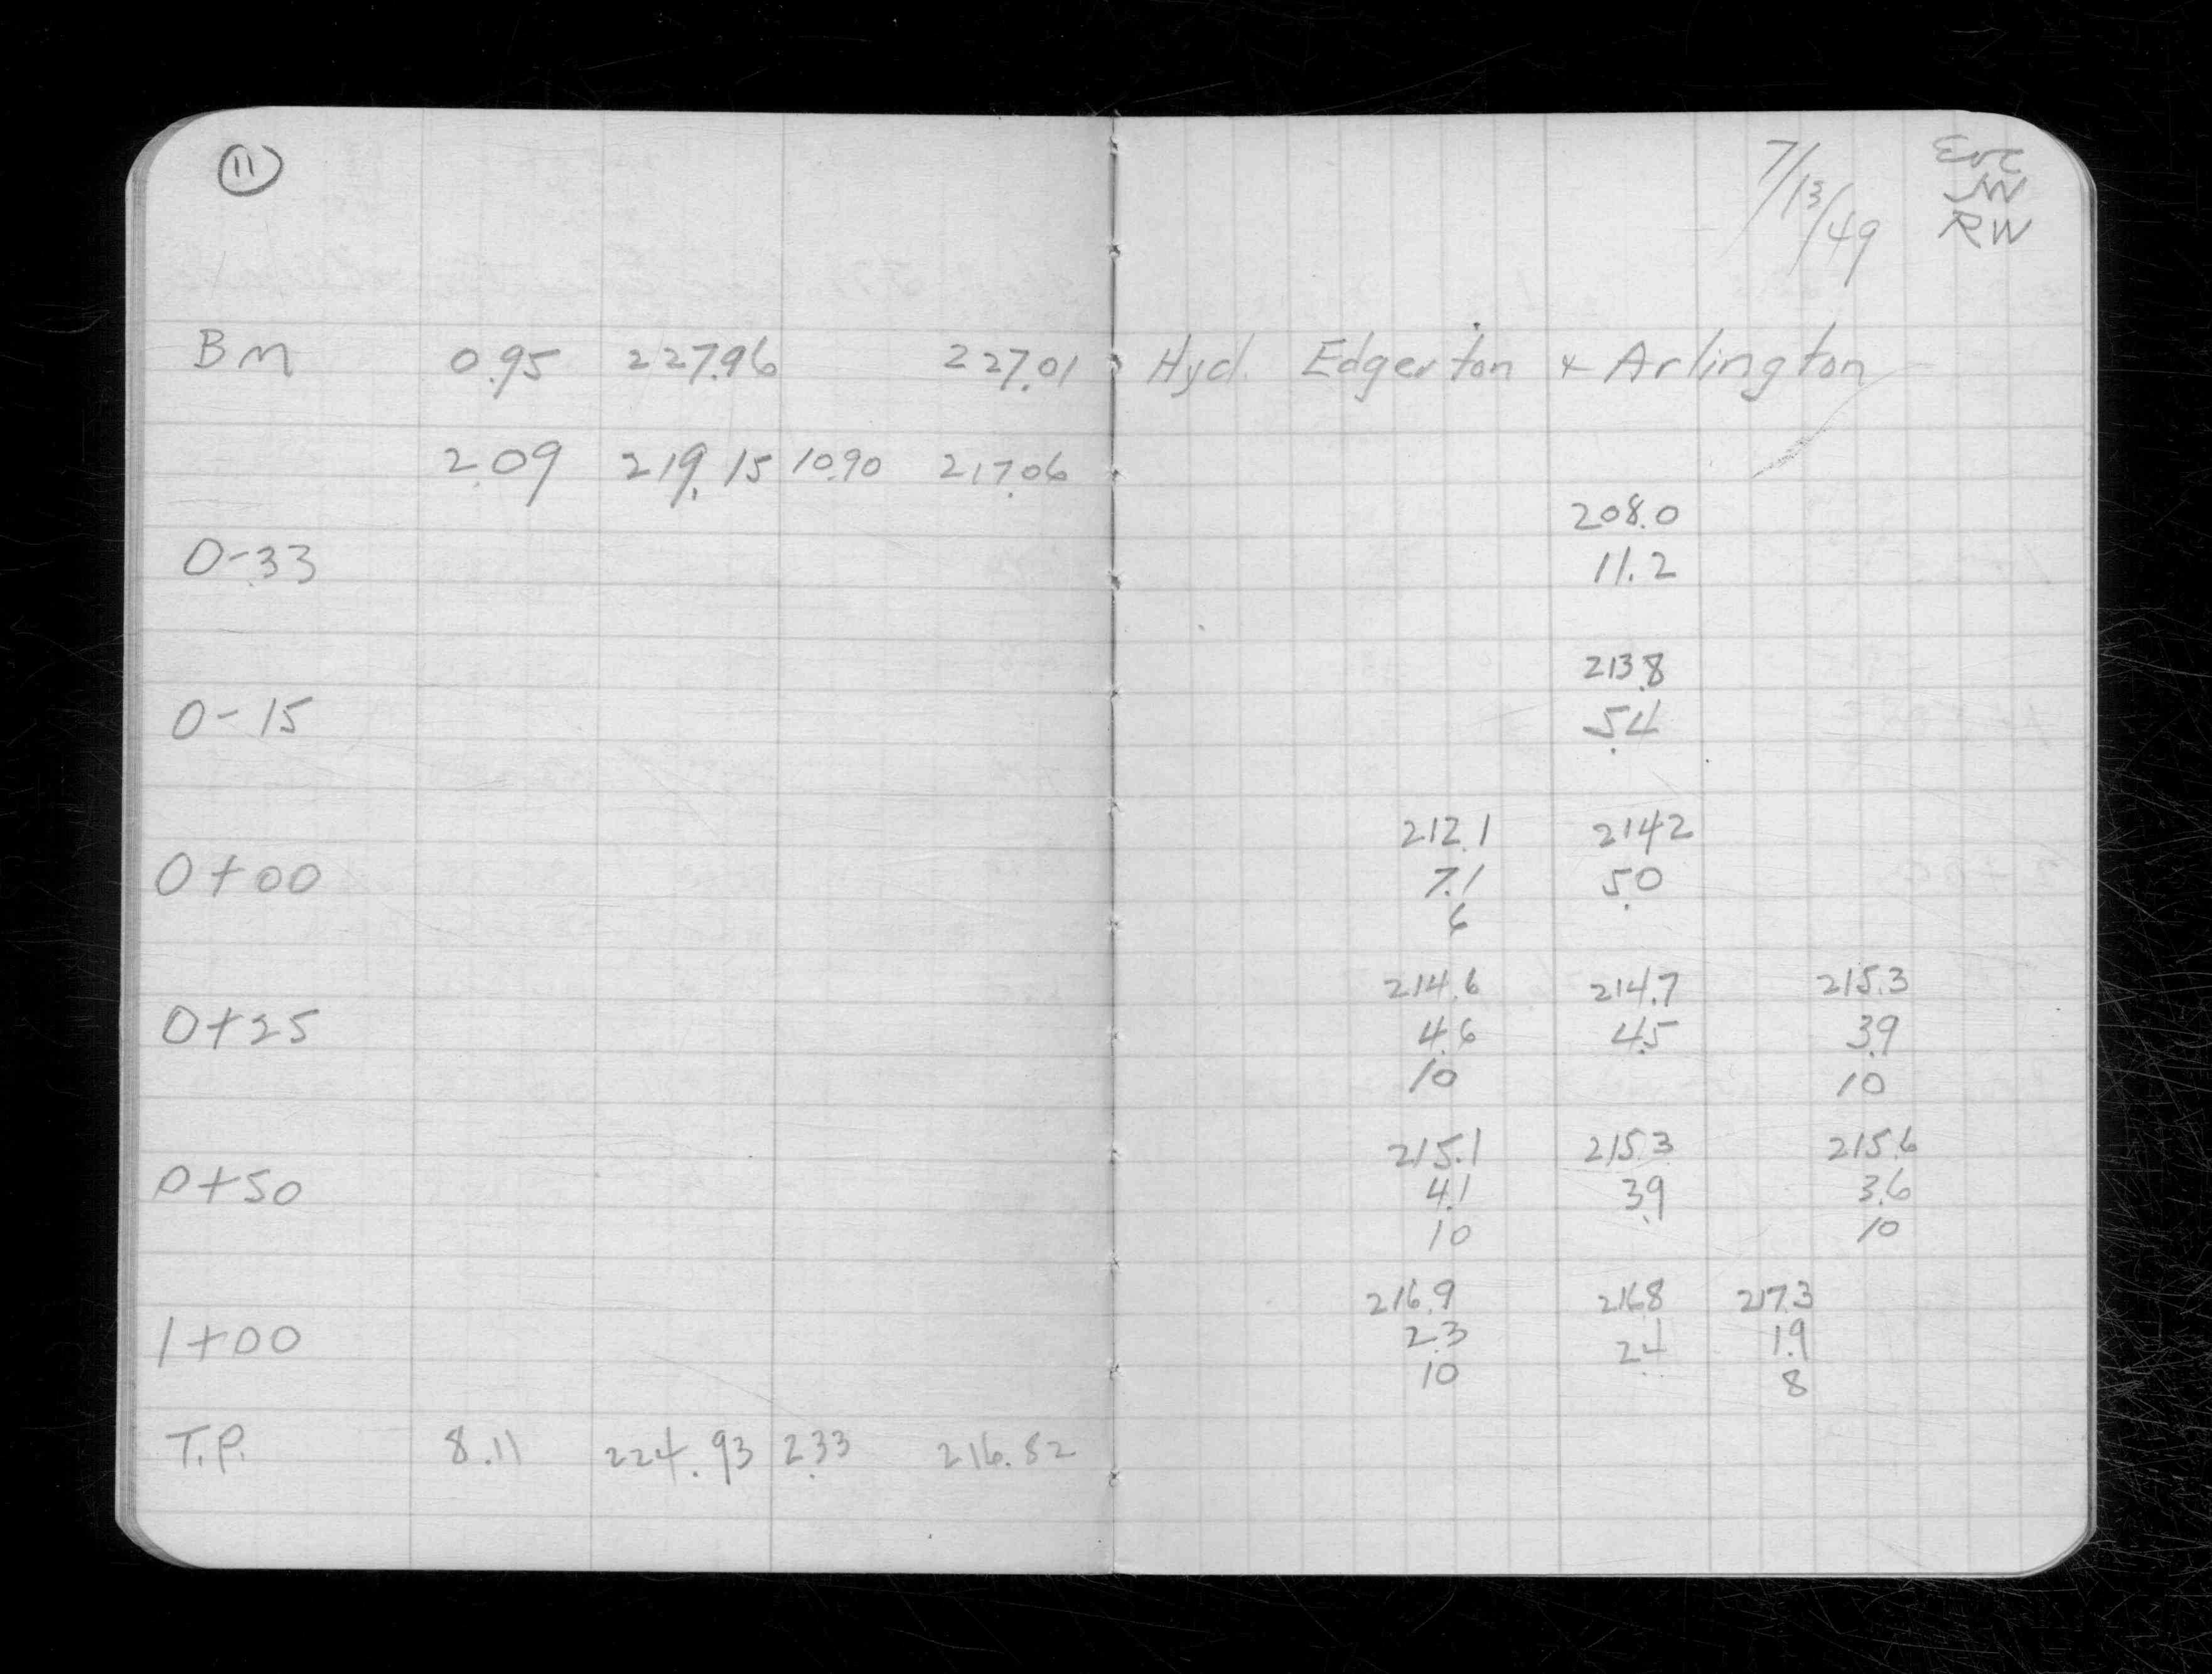 11
7/13/49
EVC
JW
RW
BM 0.95 227.96 227.01 Hyd. Edgerton & Arlington
2.09 219.15 10.90 217.06
208.0
0-33 11.2
213.8
0-15 5.4
212.1 214.2
0+00 7.1 5.0
6
214.6 214.7 215.3
0+25 4.6 4.5 3.9
10 10
215.1 215.3 215.6
0+50 4.1 3.9 3.6
10 10
216.9 216.8 217.3
1+00 2.3 2.4 1.9
10 8
T.P. 8.11 224.93 2.33 216.82